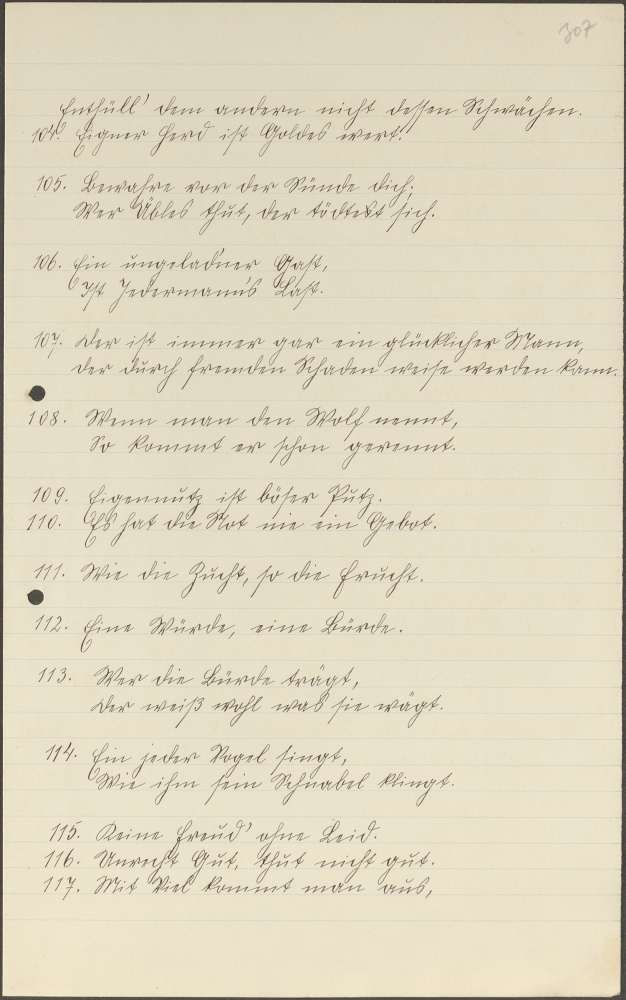 307
Enthüll' dem andern nicht dessen Schwächen.
104. Eigner Herd ist Goldes wert.
105. Bewahre vor der Sünde dich;
Wer Übles thut, der tödtet sich.
106. Ein ungelad'ner Gast,
Ist Jedermann's Last.
107. Der ist immer gar ein glücklicher Mann,
Der durch fremden Schaden weise werden kann.
108. Wenn man den Wolf nennt,
So kommt er schon gerennt.
109. Eigennutz ist böser Putz.
110. Es hat die Not nie ein Gebot.
111. Wie die Zucht, so die Frucht.
112. Eine Würde, eine Bürde.
113. Wer die Bürde trägt,
Der weiß wohl was sie wägt.
114. Ein jeder Vogel singt,
Wie ihm sein Schnabel klingt.
115. Keine Freud' ohne Leid.
116. Unrecht Gut, thut nicht gut.
117. Mit Viel kommt man aus,